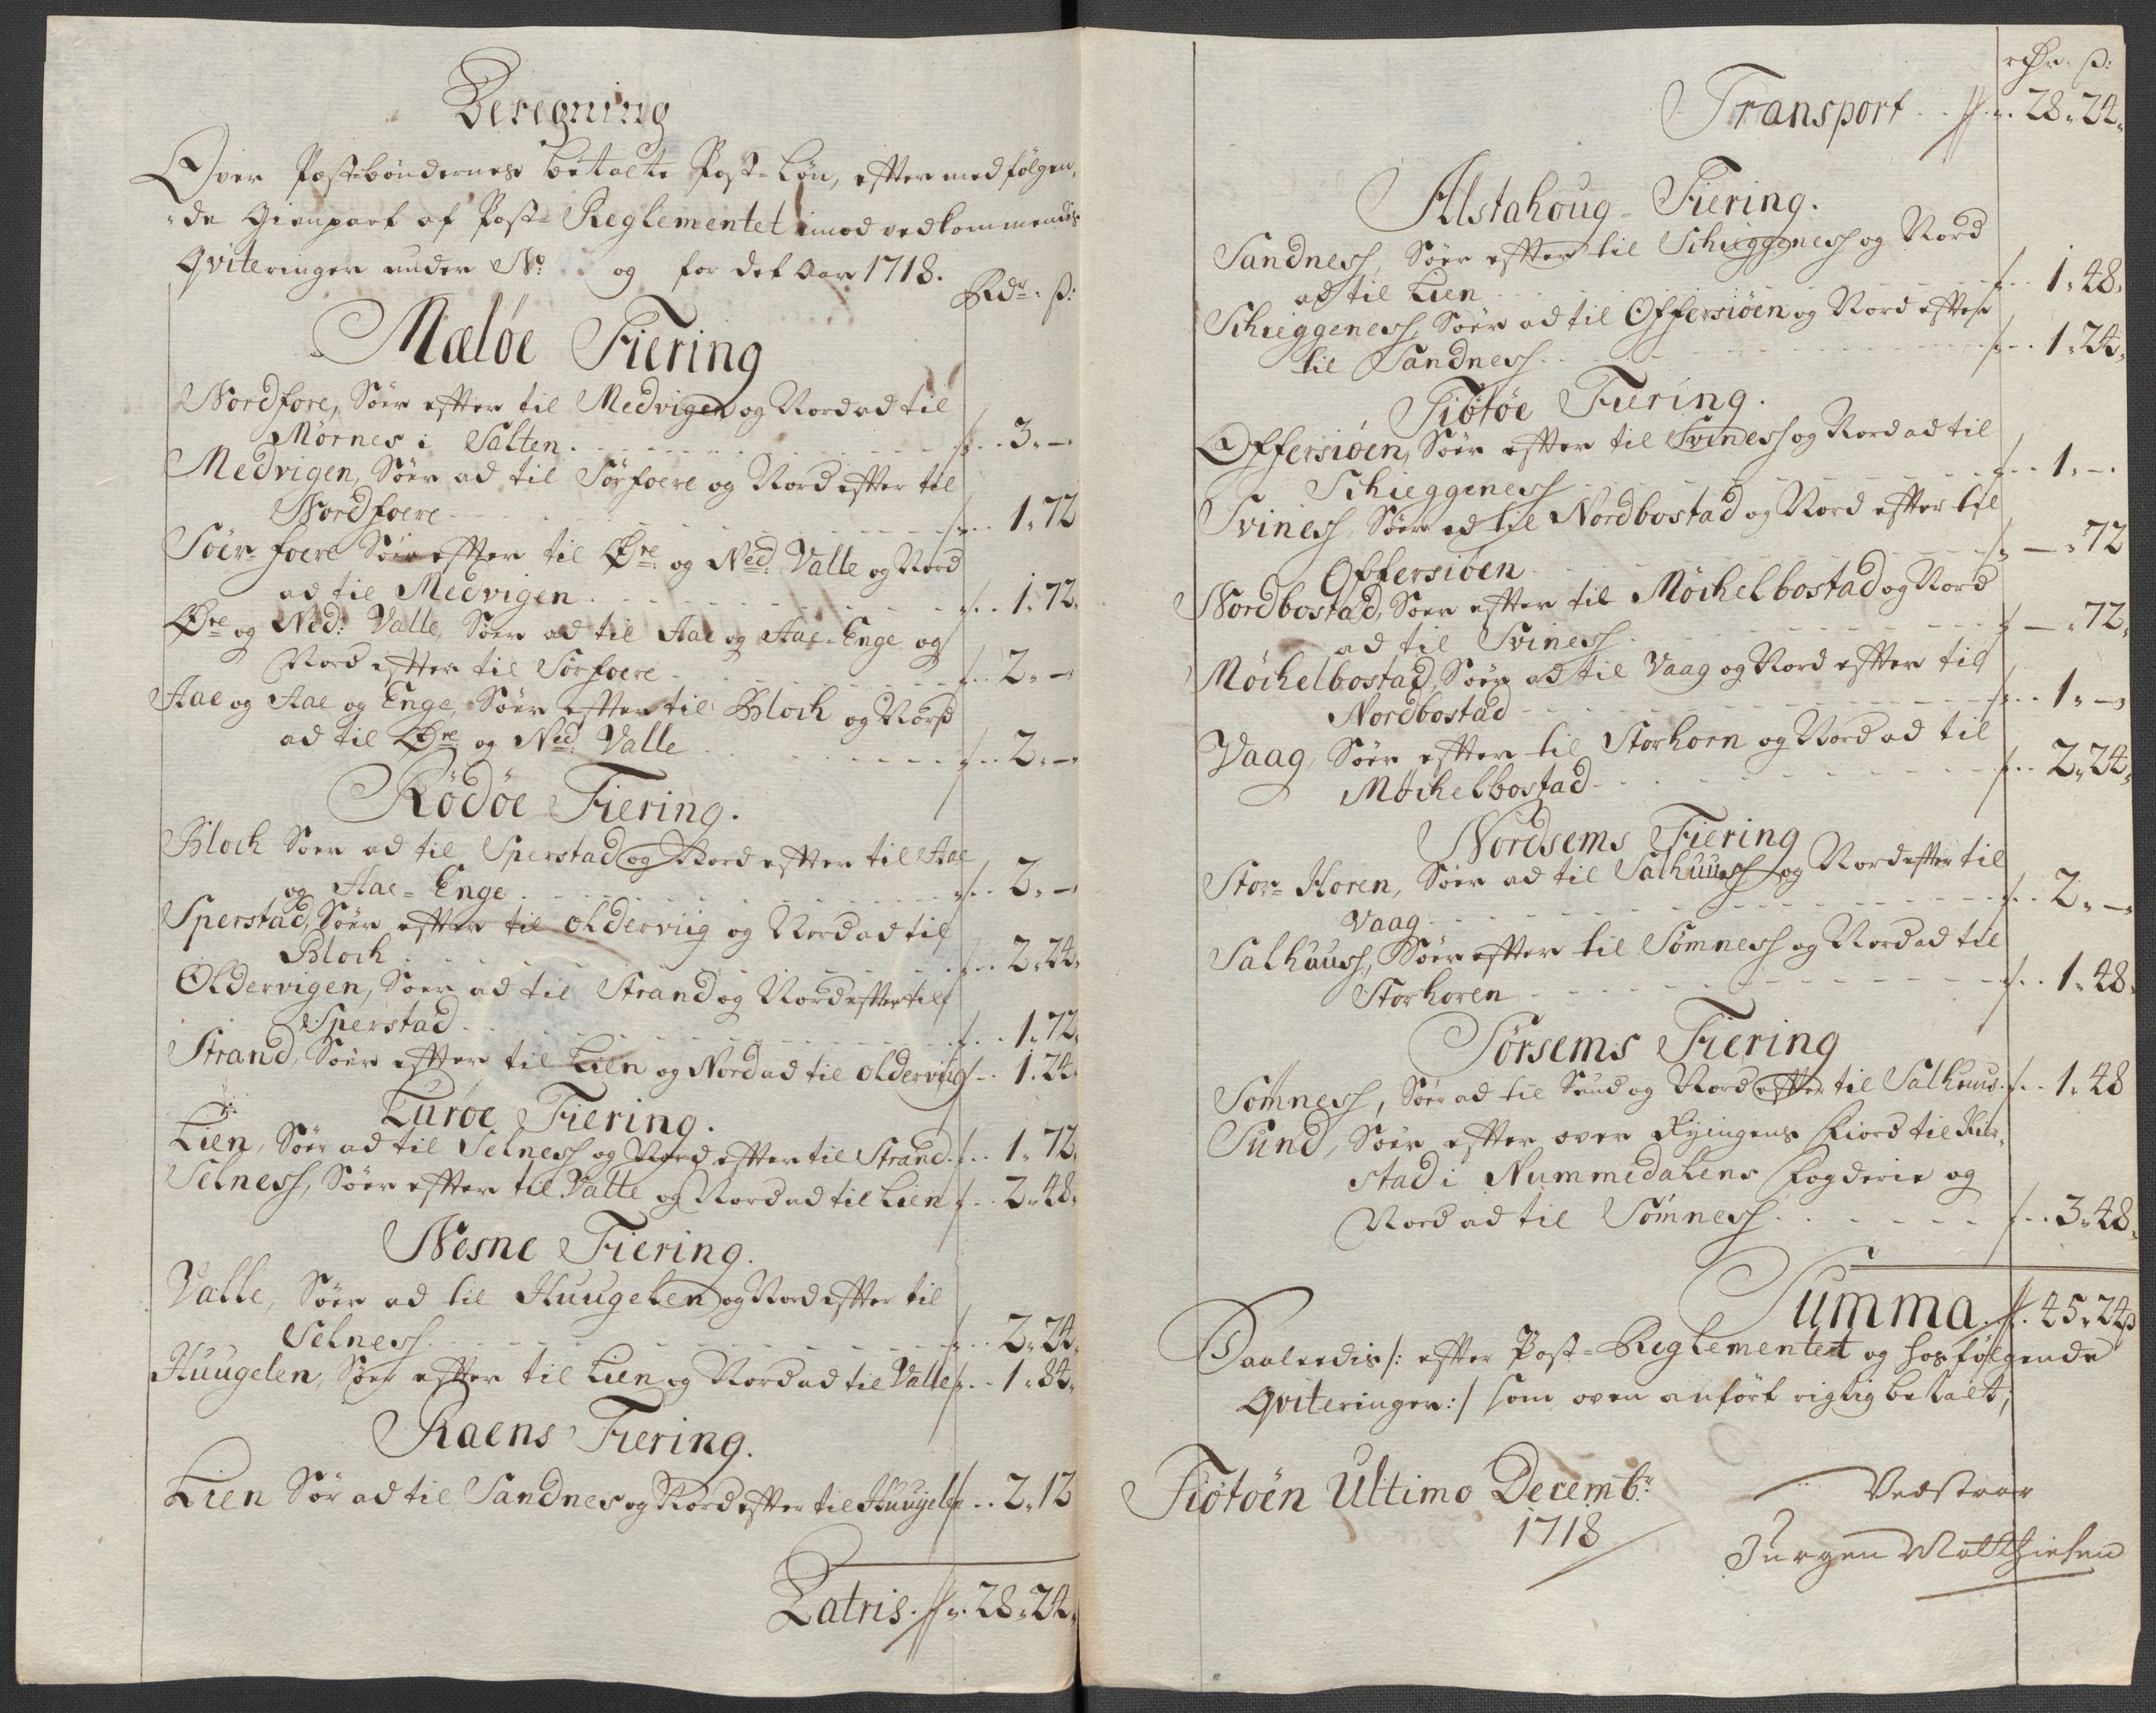 Beregning
Over Postbøndernes betalte Post-Løn, effter med følgen,
de Gienpart af Post-Reglementet imod vedkommendis
Qviteringer under No og for det Aar 1718.
Rdr: ß:
Meløe Fiering
Nordfore, Søer effter til Medvigen og Nord ad til
Mørnes i Salten . . . 3. —
Medvigen, Søer ad til Sørfoere og Nord effter til
Nordfoere . . . 1. 72
Söer-foere Søer effter til Øre: og Ned: Valle og Nord
ad til Medvigen . . . 1. 72.
Øre og Ned: Valle, Søer ad til Aae og Aae-Enge og
Nord effter til Sørfoere . . . 2. —
Aae og Aae og Enge, Søer effter til Bloch og Nord
ad til Øre og Ned: Valle . . . 2. —
Rödöe Fiering.
Bloch Søer ad til Sperstad og Nord effter til Aae
og Aae-Enge . . . 2. —
Sperstad, Søer effter til Olderviig og Nord ad til
Bloch . . . 2. 24.
Oldervigen, Søer ad til Strand og Nord effter til
Sperstad . . . 1. 72.
Strand, Søer effter til Lien og Nord ad til Olderviig . . 1. 24.
Luröe Fiering.
Lien, Søer ad til Selness og Nord effter til Strand . . 1. 72.
Selness, Søer effter til Valle og Nord ad til Lien . . 2. 48.
Nesne Fiering.
Valle, Søer ad til Huugelen og Nord effter til
Selness . . . 2. 24.
Huugelen, Søer effter til Lien og Nord ad til Valle . . 1. 84.
Raens Fiering.
Lien Sør ad til Sandnes og Nord effter til Huugelen . . 2. 12
Latris . . 28. 24.
rdr: ß:
Transport . . . 28. 24.
Alstahoug-Fiering.
Sandness, Søer effter til Schieggeness og Nord
ad til Lien . . . 1. 48.
Schieggeness, Søer ad til Offersiøen og Nord effter
til Sandness . . . 1. 24.
Tiøtøe Fiering.
Offersiøen, Søer effter til Sviness og Nord ad til
Schieggeness . . . 1. —.
Sviness, Søer ad til Nordbostad og Nord effter til
Offersiøen . . . — . 72
Nordbostad, Søer effter til Møchelbostad og Nord
ad til Sviness . . . — . 72.
Møchelbostad, Søer ad til Vaag og Nord effter til
Nordbostad . . . 1. —
Vaag, Søer effter til Storhorn og Nord ad til
Møchelbostad . . . 2. 24.
Nordsems Fiering
Stor-Horen, Søer ad til Salhuuss og Nord effter til
Vaag . . . 2. —
Salhuuss, Søer effter til Sømness og Nord ad til
Storhoren . . . 1. 48.
Sørsems Fiering
Sømness, Søer ad til Sund og Nord effter til Salhuus . . 1. 48
Sund, Søer effter over Fyingens Fiord til
stad i Nummedalens Fogderie og
Nord ad til Sømness . . . 3. 48.
Summa . . 45. 24ß
Saaledis /: effter Post-Reglementet og hosfølgende
Qviteringer :/ som oven anført rigtig betalt,
Tiøtøen Ultimo Decembr
1718
Vedstaar
Jurgen Matthiesen